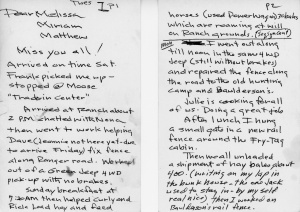 Tues I P1
Dear Melissa
Miriam
Matthew
Miss you all!
Arrived on time Sat.
Frank picked me up-
stopped @ Moose
"Tradin center"
Arrived at ranch about
2 P.M. chatted with Nona
then went to work helping
Dave (Jeannie not here yet - due
to arrive Friday) fix fence
along Ranger road. Worked
out of a Jeep 4WD
pick-up with no brakes.
Sunday breakfast at
7:30AM then helped Curly and
load hay and feed
P2
horses (used Powerwagon)
which are roaming at will
on Ranch grounds.
I went out along
till noon in the same 4WD
Jeep (still without brakes)
and repaired the fence along
the road to the old hunting
camp and Bauldersons.
Julie is cooking for all
of us. Doing a great job
After lunch I hung
a small gate in a new rail
fence around the Fry-Tag
cabin.
Then we all unloaded
a shipment of hay bales about
400. (writing on my lap in
the bunk house, the one Jack
used to stay in - by my self
real nice) then I worked on
rail fence.